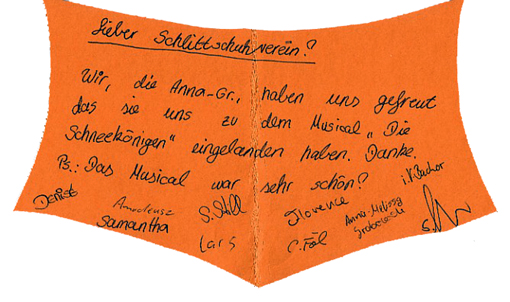 Lieber Schlittschuhverein?
Wir, die Anna-Gr., haben uns gefreut
das sie uns zu dem Musical „Die
Schneekönigen" eingelanden haben. Danke.
Ps.: Das Musical war sehr schön?
Denise Amadeusz S. Stoll Florence i.V. Bachor
Samantha Lars C. Föl Anna-Melissa